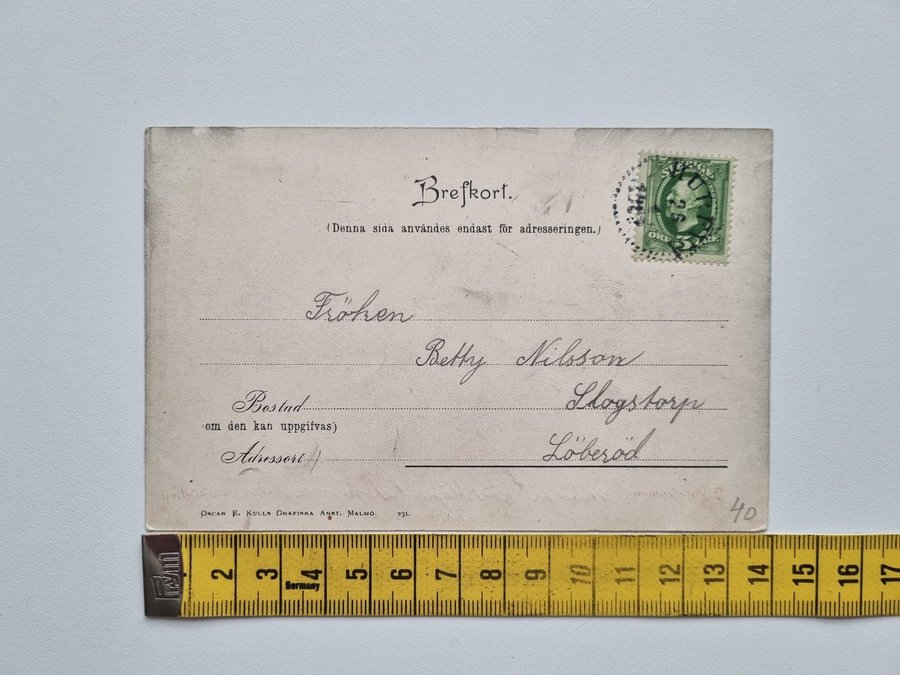 Brefkort.
(Denna sida användes endast för adresseringen.)
SVERIGE
ÖRE 5 ÖRE
Fröken
Betty Nilsson
Bostad
Slogstorp
om den kan uppgifvas)
Adressort
Löberöd
OSCAR E. KULLS GRAFISKA ANST. MALMÖ 231.
40
2 3 4 5 6 7 8 9 10 11 12 13 14 15 16 17
Germany